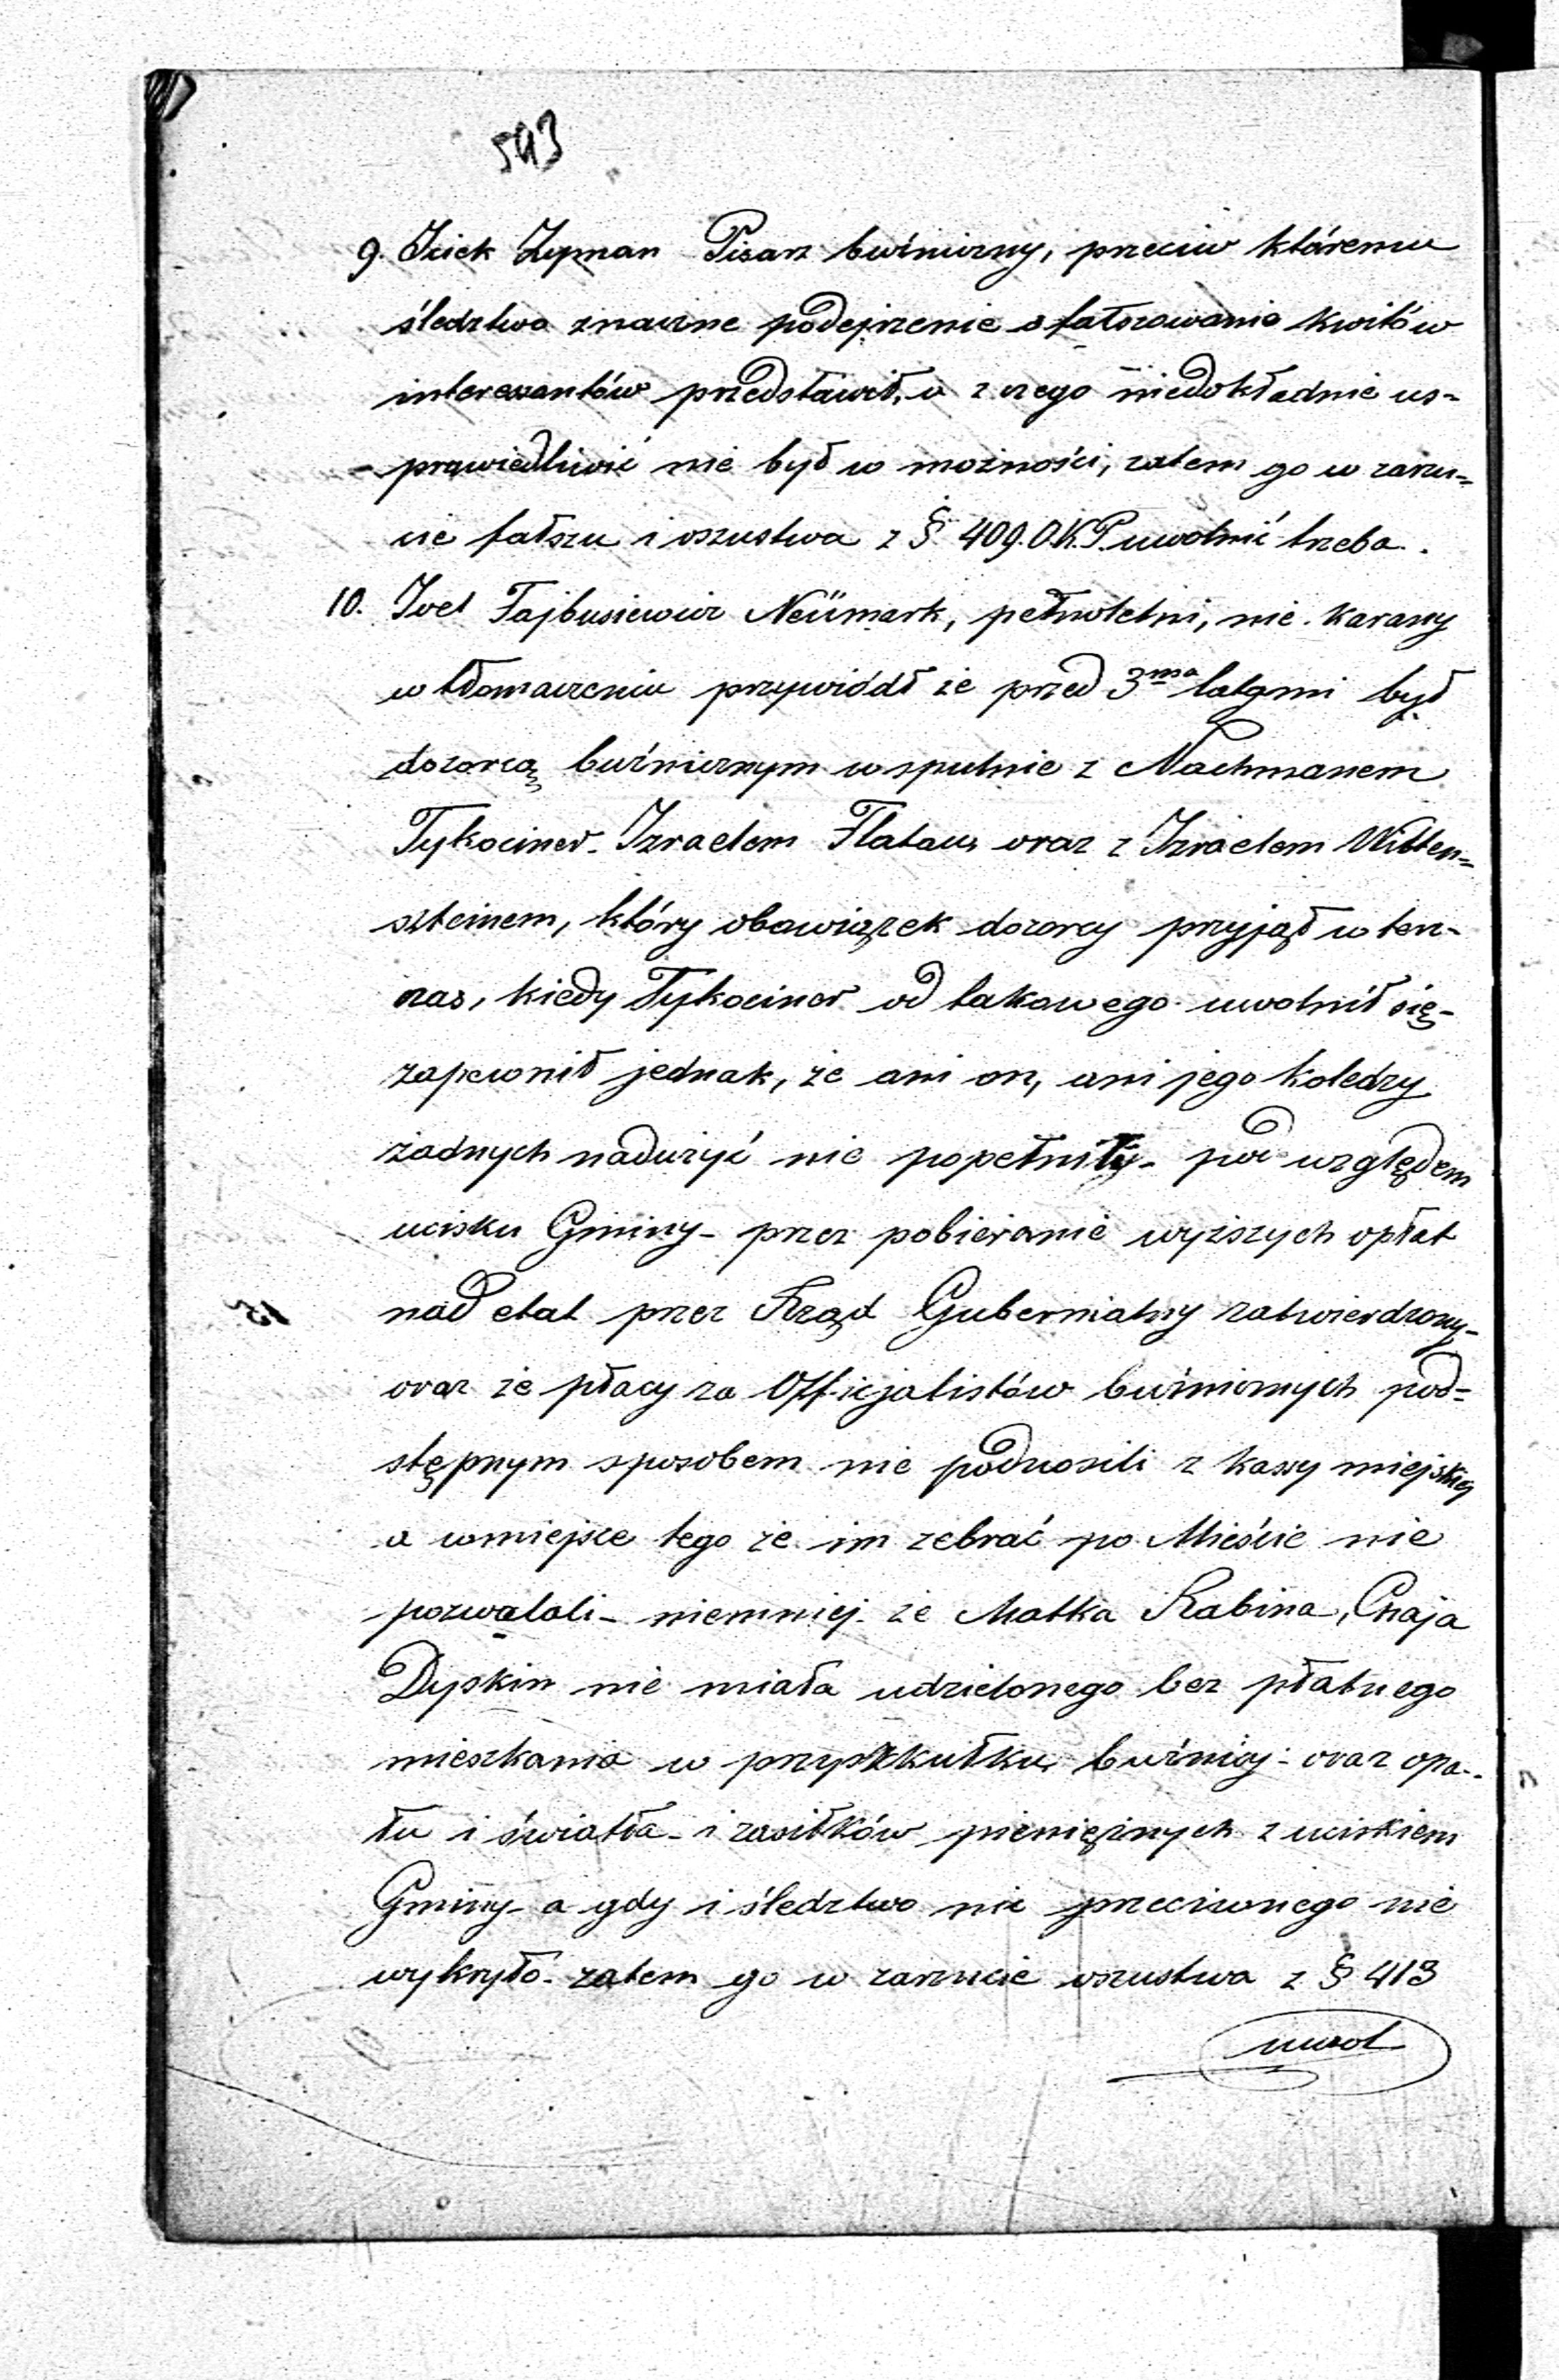 543
9. Iciek Zyman Pisarz buźniczny, przeciw któremu
śledztwo znaczne podejrzenie o fałszowanie kwitów
interessantów przedstawił, a z czego niedokładnie us-
-prawiedliwić nie był w możności, zatem go w zarzu-
cie fałszu i oszustwa z § 409. O.K.P. uwolnić trzeba.
10. Joel Fajbusiewicz Neümark, pełnoletni, nie karany
w tłomaczeniu przywiódł że przed 3ma latami był
dozorcą buźnicznym wspulnie z Nachmanem
Tykociner - Izraelem Flatau, oraz z Izraelem Witten-
szteinem, który obowiązek dozorcy przyjął w ten-
czas, kiedy Tykociner od takowego uwolnił się -
zapewnił jednak, że ani on, ani jego koledzy
żadnych nadużyć nie popełnily - pod względem
ucisku Gminy - przez pobieranie wyższych opłat
nad etat przez Rząd Gubernialny zatwierdzony -
oraz że płacy za Officjalistów buźnicznych pod-
stępnym sposobem nie podnosili z kassy miejskiej
a wmiejsce tego że im zebrać po Mieście nie
pozwalali - niemniej że Matka Rabina, Chaja
Dyskin nie miała udzielonego bez płatnego
mieszkania w przyszkułku buźnicy - oraz opa-
łu i światła - i zasiłków pieniężnych z uciskiem
Gminy - a gdy i śledztwo nic przeciwnego nie
wykryło - zatem go w zarzucie oszustwa z § 413
uwol